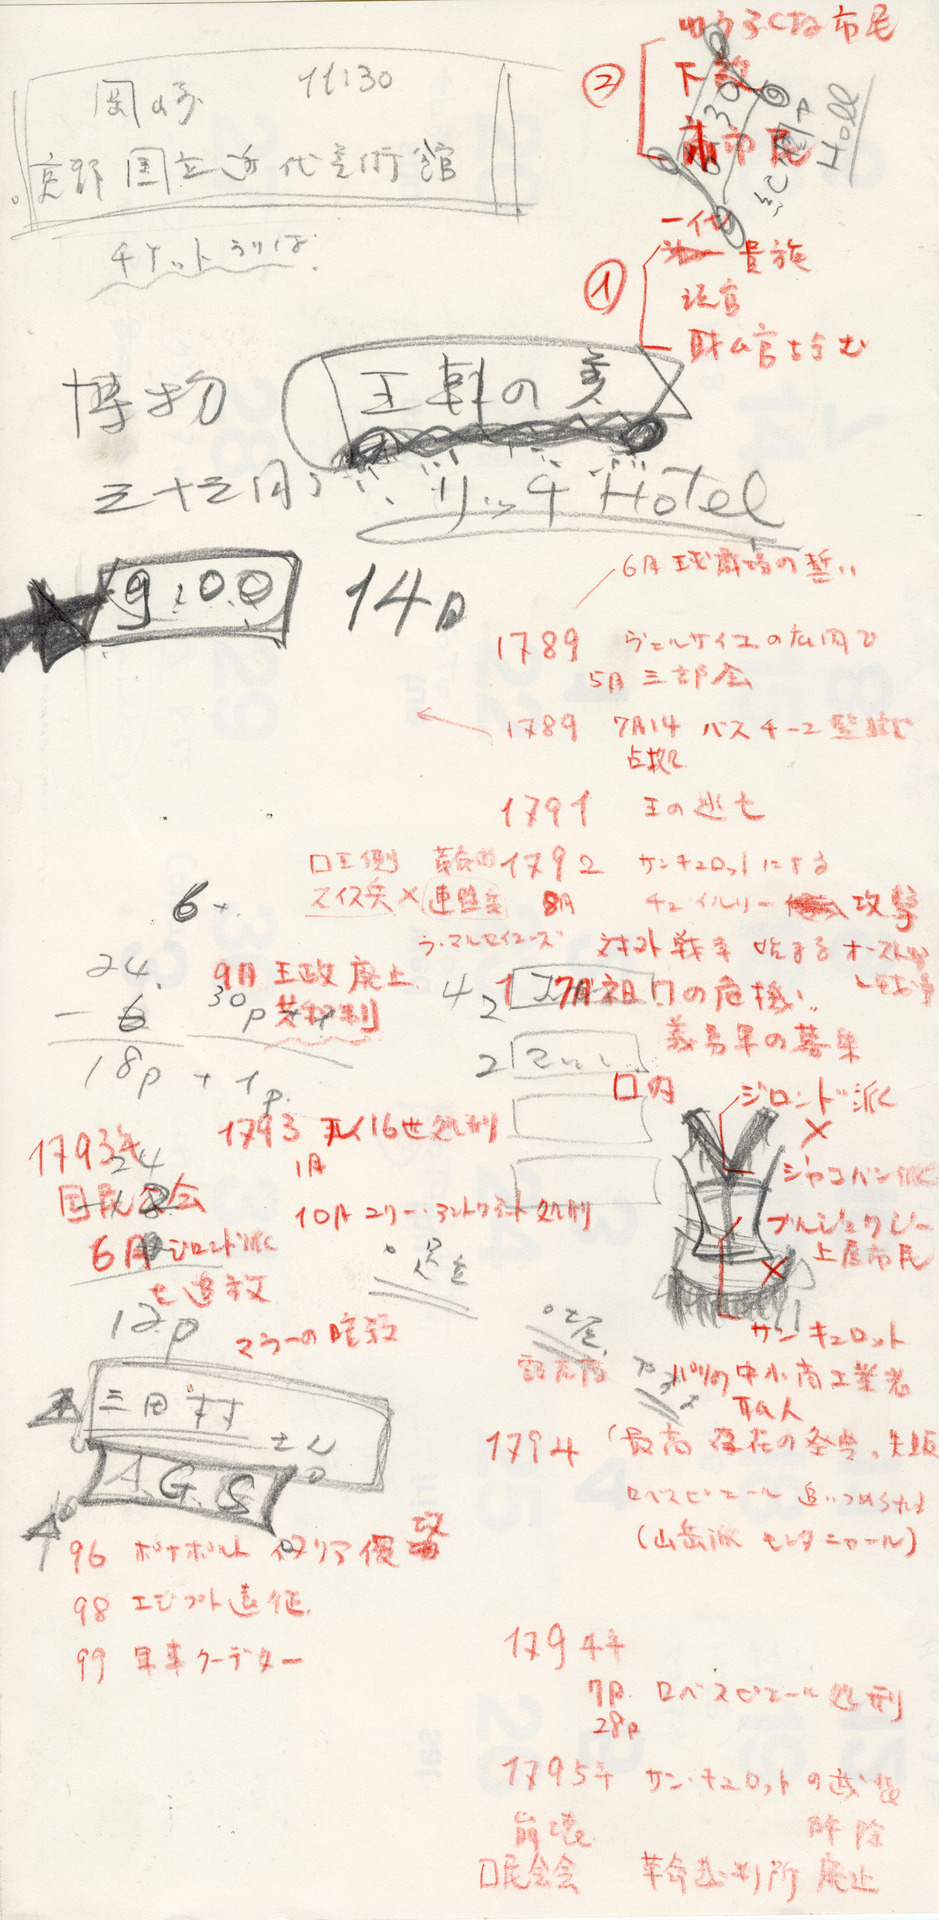 ゆうふくな市民
②
下級
市民
Hall
岡崎 11:30
京都国立近代美術館
チケットうりば
一代
①
貴族
法官
財ム官も含む
博物
王朝の美
三十三間
リッチHotel
9:00
14日
6月 球戯場の誓い
1789 ヴェルサイユの広間で
5月 三部会
1789 7月14 バスチーユ監獄
占拠
1791 王の逃亡
1792 サンキュロットによる
8月 チュイルリー 攻撃
王側
スイス兵 × 連盟兵
ラ・マルセイエーズ
対外戦争 始まる オーストリア
9月 王政廃止
共和制
7月 祖国の危機
義勇軍の募集
24
- 6
18p + 1p
30p
6+
42
2
国内
ジロンド派
ジャコバン派
ブルジョワジー
上層市民
サンキュロット
パリの中小商工業者
職人
1793 ルイ16世処刑
1月
10月 マリー・アントワネット処刑
1793年
国民公会
6月 ジロンド派
を追放
24
12p
マラーの暗殺
三田村さん
A.G.S
1794 「最高存在の祭典」失敗
ロベスピエール 追いつめられ
(山岳派 モンタニャール)
96 ボナパルト イタリア侵攻
98 エジプト遠征
99 軍事クーデター
1794年
7月 ロベスピエール処刑
28日
1795年 サン・キュロットの武装
崩壊 解除
国民公会 革命裁判所 廃止